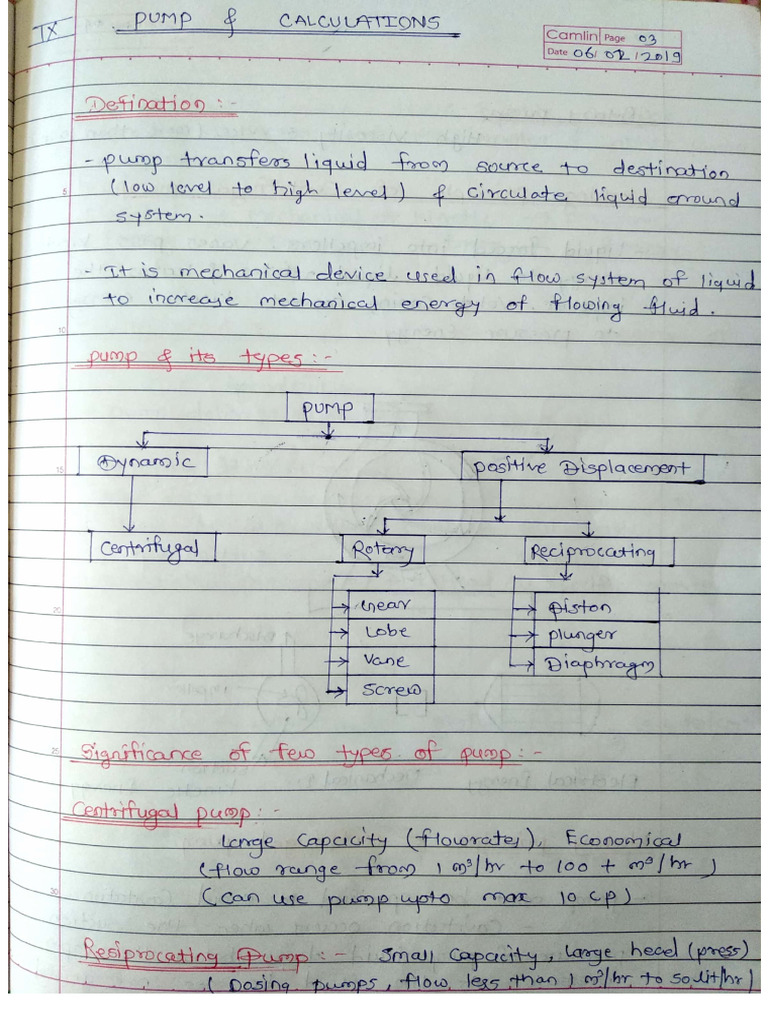 IX
PUMP & CALCULATIONS
Camlin Page 03
Date 06/02/2019
Defination :-
- pump transfers liquid from source to destination
(low level to high level) & circulate liquid around
system.
- It is mechanical device used in flow system of liquid
to increase mechanical energy of flowing fluid.
pump & its types :-
PUMP
Dynamic
positive Displacement
Centrifugal
Rotary
Reciprocating
Gear
Piston
Lobe
plunger
Vane
Diaphragm
Screw
Significance of few types of pump :-
Centrifugal pump :-
Large capacity (flowrates), Economical
(flow range from 1 m³/hr to 100 + m³/hr)
(can use pump upto max 10 cp).
Resiprocating Pump :- Small capacity, Large head (press)
(Dosing pumps, flow less than 1 m³/hr to 50 lit/hr)
5
10
15
20
25
30